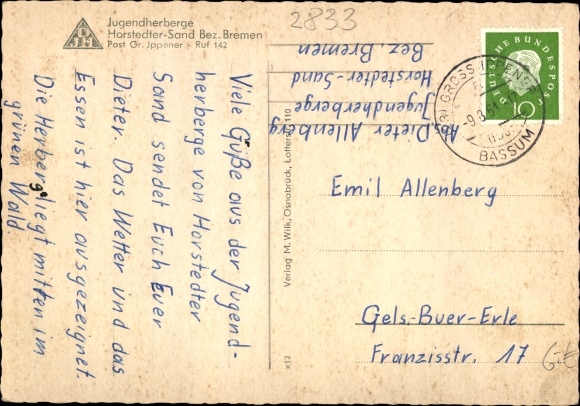 Jugendherberge
Horstedter-Sand Bez. Bremen
Post Gr. Jppener - Ruf 142
2833
DJH
Viele Güße aus der Jugend-
herberge von Horstedter
Sand sendet Euch Euer
Dieter. Das Wetter und das
Essen ist hier ausgezeignet.
Die Herberg liegt mitten im
grünen Wald
Abs. Dieter Allenberg
Jugendherberge
Horstedter-Sand
Bez. Bremen
Verlag M. Wilk, Osnabrück, Lotterstr. 110
x12
DEUTSCHE BUNDESPOST
10
GROSS
BASSUM
Emil Allenberg
Gels.-Buer-Erle
Franzisstr. 17